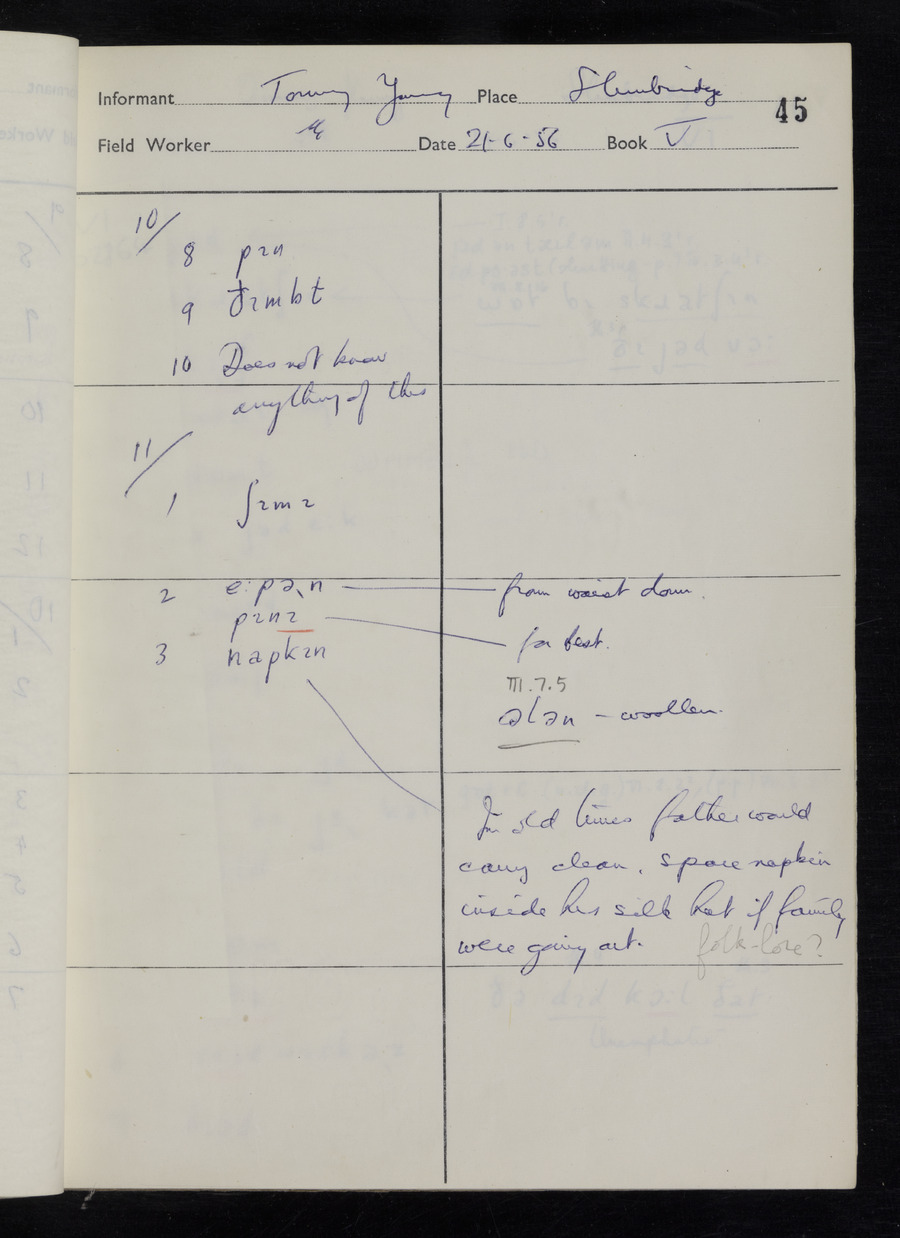 Informant Tommy Young Place Slimbridge
45
Field Worker Date 21-6-56 Book V
10/
8 pɪn
9 θɪmbt
10 Does not know
anything of this
11/
1 ʃɪmɪ
2 e:pə̩n from waist down.
pɪnɪ for best.
3 napkɪn
III.7.5
ələn - woollen.
In old times father would
carry clean, spare napkin
inside his silk hat if family
were going out. folk-lore?